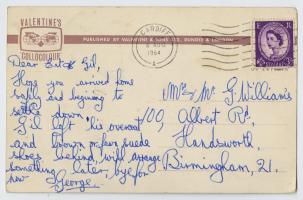 VALENTINE'S
COLLOCOLOUR
PUBLISHED BY VALENTINE & SONS LTD., DUNDEE & LONDON
CARDIFF
1964
Dear Gil,
Hope you arrived home
safely and beginning to
settle down.
Gil left his overcoat
and brown suede
shoes behind, will arrange
something later, bye for
now George.
Mrs Mr G. Williams
100, Albert Rd,
Handsworth,
Birmingham, 21.